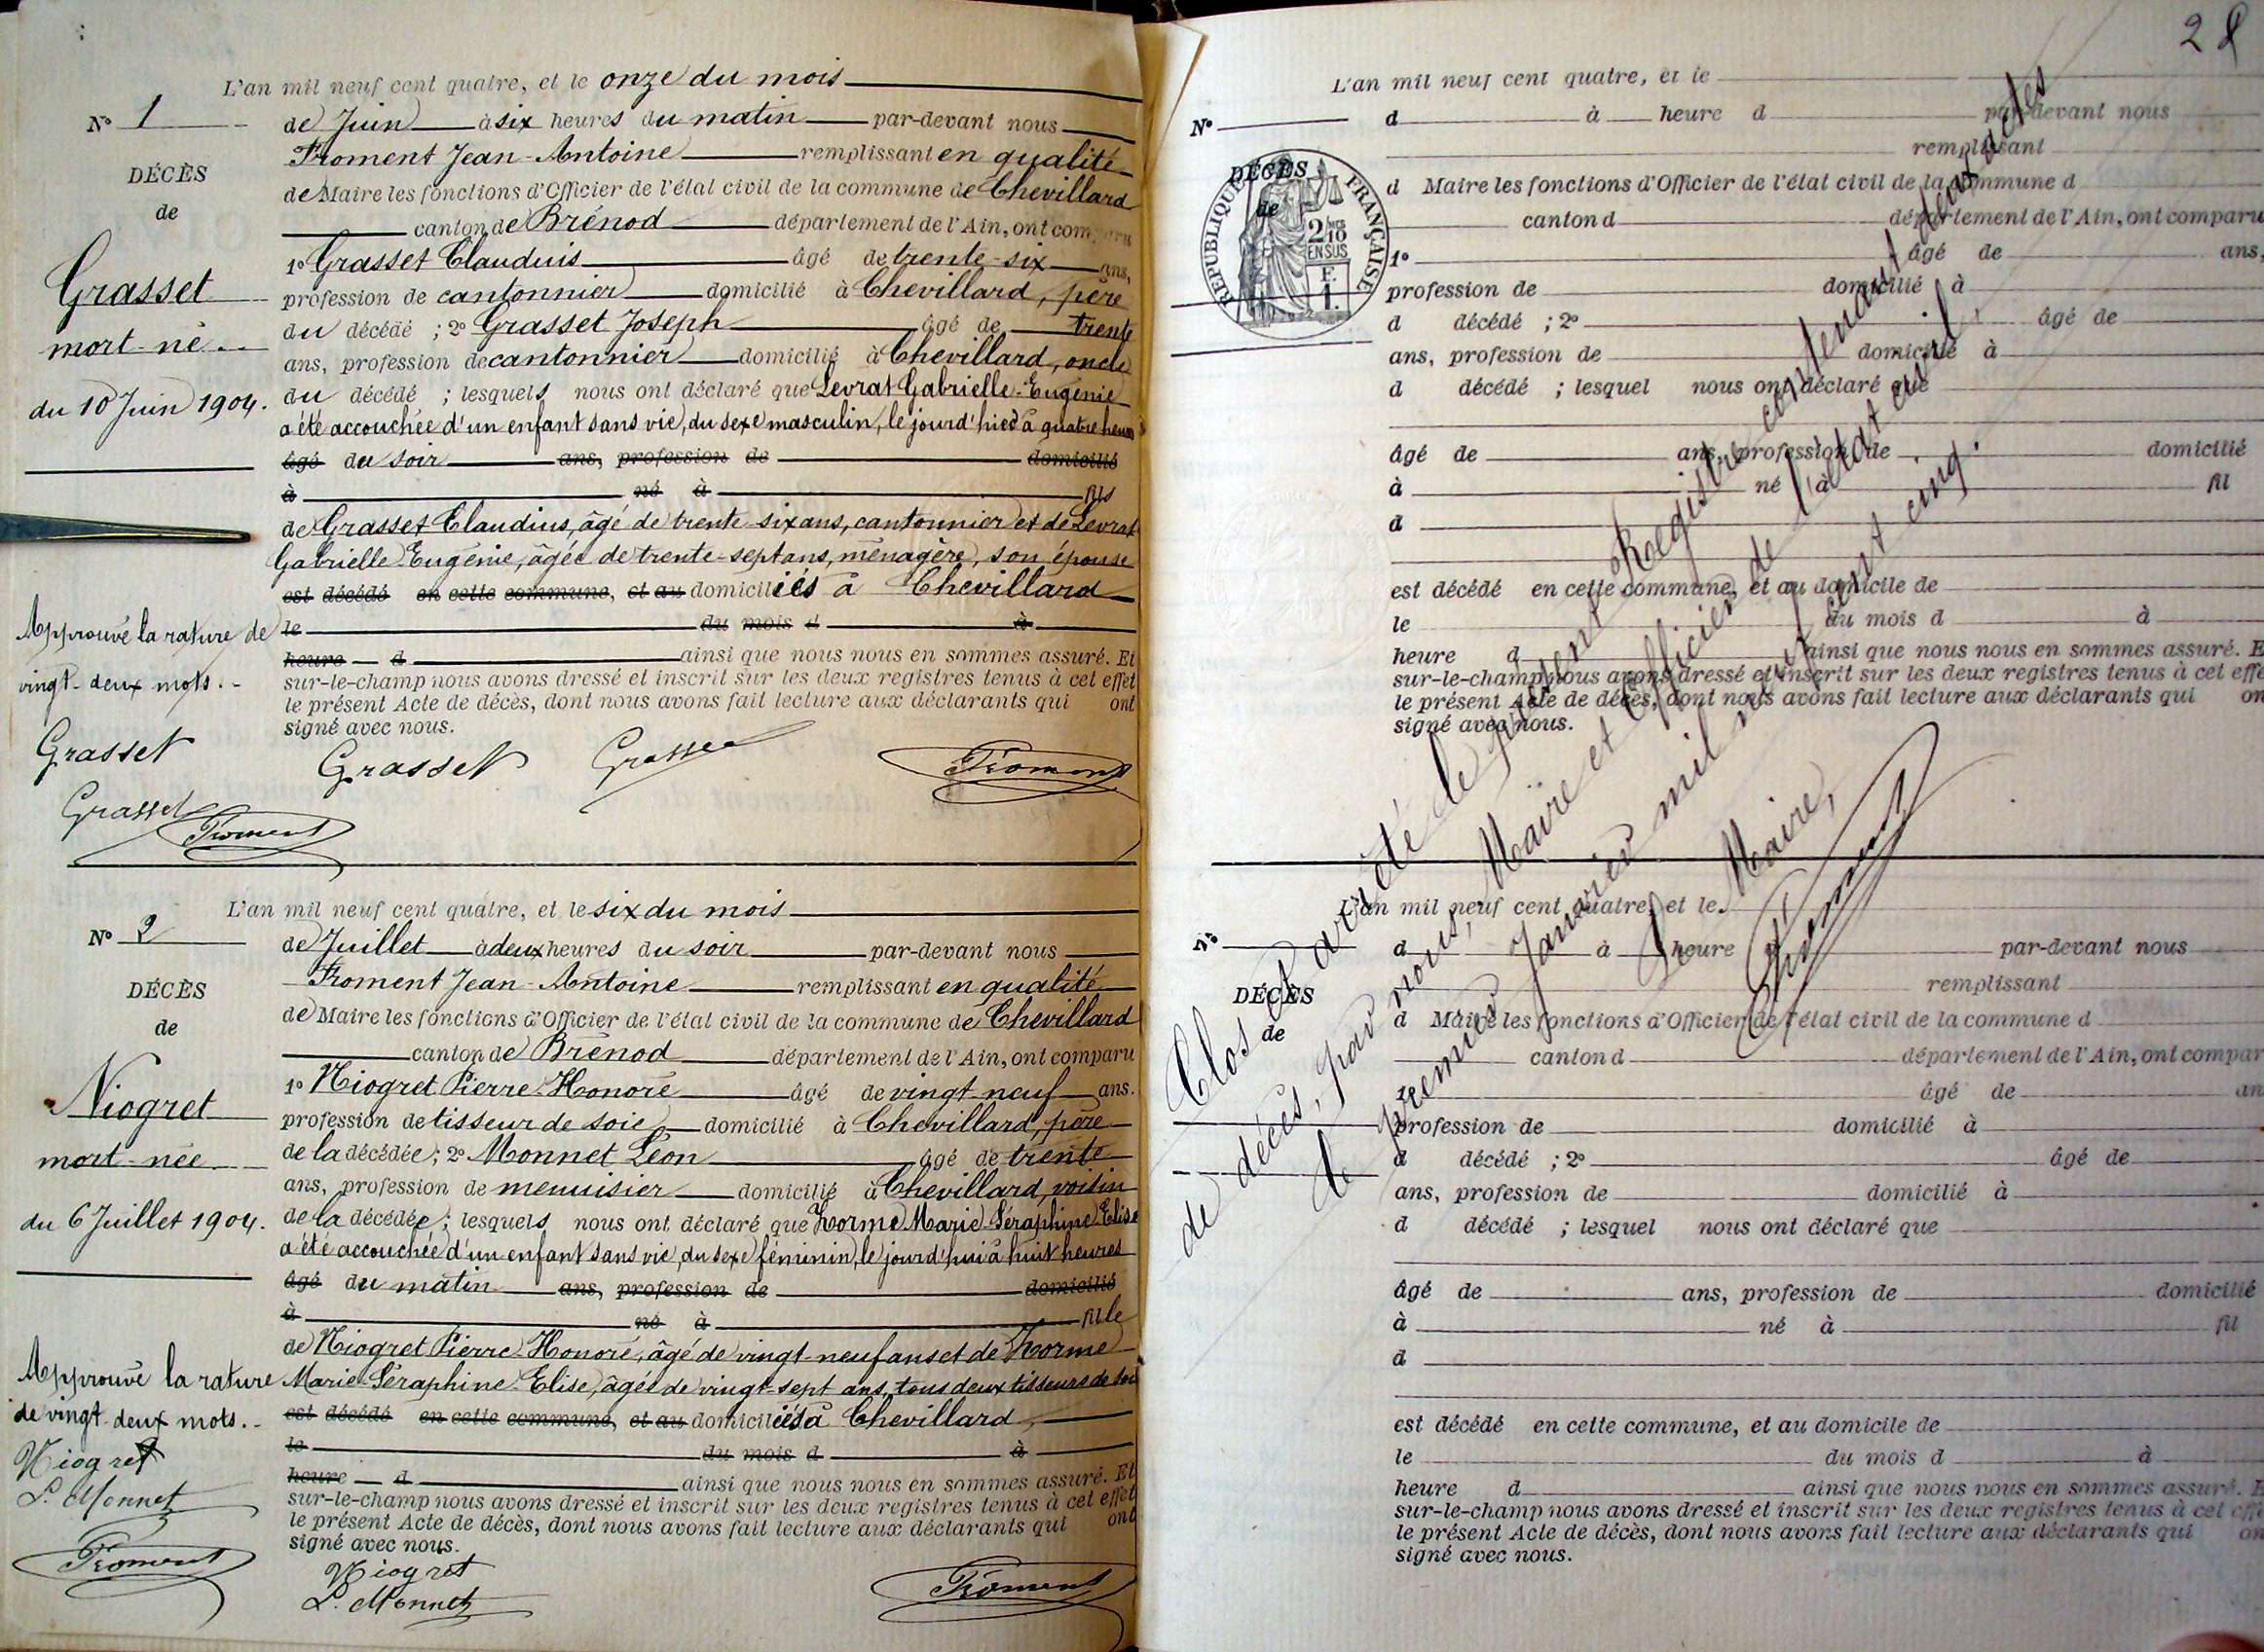 L'an mil neuf cent quatre, et le onze du mois
N° 1
de Juin à six heures du matin par-devant nous
Froment Jean-Antoine remplissant en qualité
DÉCÈS
de Maire les fonctions d'Officier de l'état civil de la commune de Chevillard
de
canton de Brénod département de l'Ain, ont comparu
1° Grasset Claudius âgé de trente-six ans,
Grasset
profession de cantonnier domicilié à Chevillard, père
du décédé ; 2° Grasset Joseph âgé de trente
mort-né
ans, profession de cantonnier domicilié à Chevillard, oncle
du 10 Juin 1904.
du décédé ; lesquels nous ont déclaré que Levrat Gabrielle-Eugénie
a été accouchée d'un enfant sans vie, du sexe masculin, le jour d'hier à quatre heures
âgé du soir ans, profession de domicilié
à né à fils
de Grasset Claudius, âgé de trente-six ans, cantonnier et de Levrat
Gabrielle Eugénie, âgée de trente-sept ans, ménagère, son épouse
est décédé en cette commune, et au domiciliés à Chevillard
Approuvé la rature de
le du mois d à
vingt-deux mots.
heure d ainsi que nous nous en sommes assuré. Et
sur-le-champ nous avons dressé et inscrit sur les deux registres tenus à cet effet
le présent Acte de décès, dont nous avons fait lecture aux déclarants qui ont
signé avec nous.
Grasset
Grasset Grasset Froment
Grasset
Froment
L'an mil neuf cent quatre, et le six du mois
N° 2
de Juillet à deux heures du soir par-devant nous
Froment Jean-Antoine remplissant en qualité
DÉCÈS
de Maire les fonctions d'Officier de l'état civil de la commune de Chevillard
de
canton de Brénod département de l'Ain, ont comparu
1° Niogret Pierre-Honoré âgé de vingt-neuf ans.
Niogret
profession de tisseur de soie domicilié à Chevillard, père
mort-née
de la décédée ; 2° Monnet Léon âgé de trente
ans, profession de menuisier domicilié à Chevillard, voisin
du 6 Juillet 1904.
de la décédée ; lesquels nous ont déclaré que Thorme Marie-Séraphine-Elise
a été accouchée d'un enfant sans vie, du sexe féminin, le jour d'hui à huit heures
âgé du matin ans, profession de domicilié
à né à fille
de Niogret Pierre-Honoré, âgé de vingt-neuf ans et de Thorme
Marie-Séraphine-Elise, âgée de vingt-sept ans, tous deux tisseurs de soie
Approuvé la rature
est décédé en cette commune, et au domiciliés à Chevillard,
de vingt-deux mots.
le du mois d à
heure d ainsi que nous nous en sommes assuré. Et
sur-le-champ nous avons dressé et inscrit sur les deux registres tenus à cet effet
le présent Acte de décès, dont nous avons fait lecture aux déclarants qui ont
signé avec nous.
Niogret
L. Monnet
Froment
Niogret
L. Monnet
Froment
28
L'an mil neuf cent quatre, et le
N°
d à heure d par-devant nous
remplissant
DÉCÈS
d Maire les fonctions d'Officier de l'état civil de la commune d
de
canton d département de l'Ain, ont comparu
REPUBLIQUE FRANÇAISE
2/10
EN SUS
F.
1.
1° âgé de ans,
profession de domicilié à
d décédé ; 2° âgé de
ans, profession de domicilié à
d décédé ; lesquel nous ont déclaré que
âgé de ans, profession de domicilié
à né à fil
d
est décédé en cette commune, et au domicile de
le du mois d à
heure d ainsi que nous nous en sommes assuré. E
sur-le-champ nous avons dressé et inscrit sur les deux registres tenus à cet effe
le présent Acte de décès, dont nous avons fait lecture aux déclarants qui on
signé avec nous.
Clos et arrêté le présent Registre contenant deux actes
de décès, par nous, Maire et officier de l'état civil
le premier Janvier mil neuf cent cinq.
Le Maire,
Froment
L'an mil neuf cent quatre, et le
N°
d à heure d par-devant nous
remplissant
DÉCÈS
d Maire les fonctions d'Officier de l'état civil de la commune d
de
canton d département de l'Ain, ont compar
1° âgé de an
profession de domicilié à
d décédé ; 2° âgé de
ans, profession de domicilié à
d décédé ; lesquel nous ont déclaré que
âgé de ans, profession de domicilié
à né à fil
d
est décédé en cette commune, et au domicile de
le du mois d à
heure d ainsi que nous nous en sommes assuré. E
sur-le-champ nous avons dressé et inscrit sur les deux registres tenus à cet effe
le présent Acte de décès, dont nous avons fait lecture aux déclarants qui on
signé avec nous.